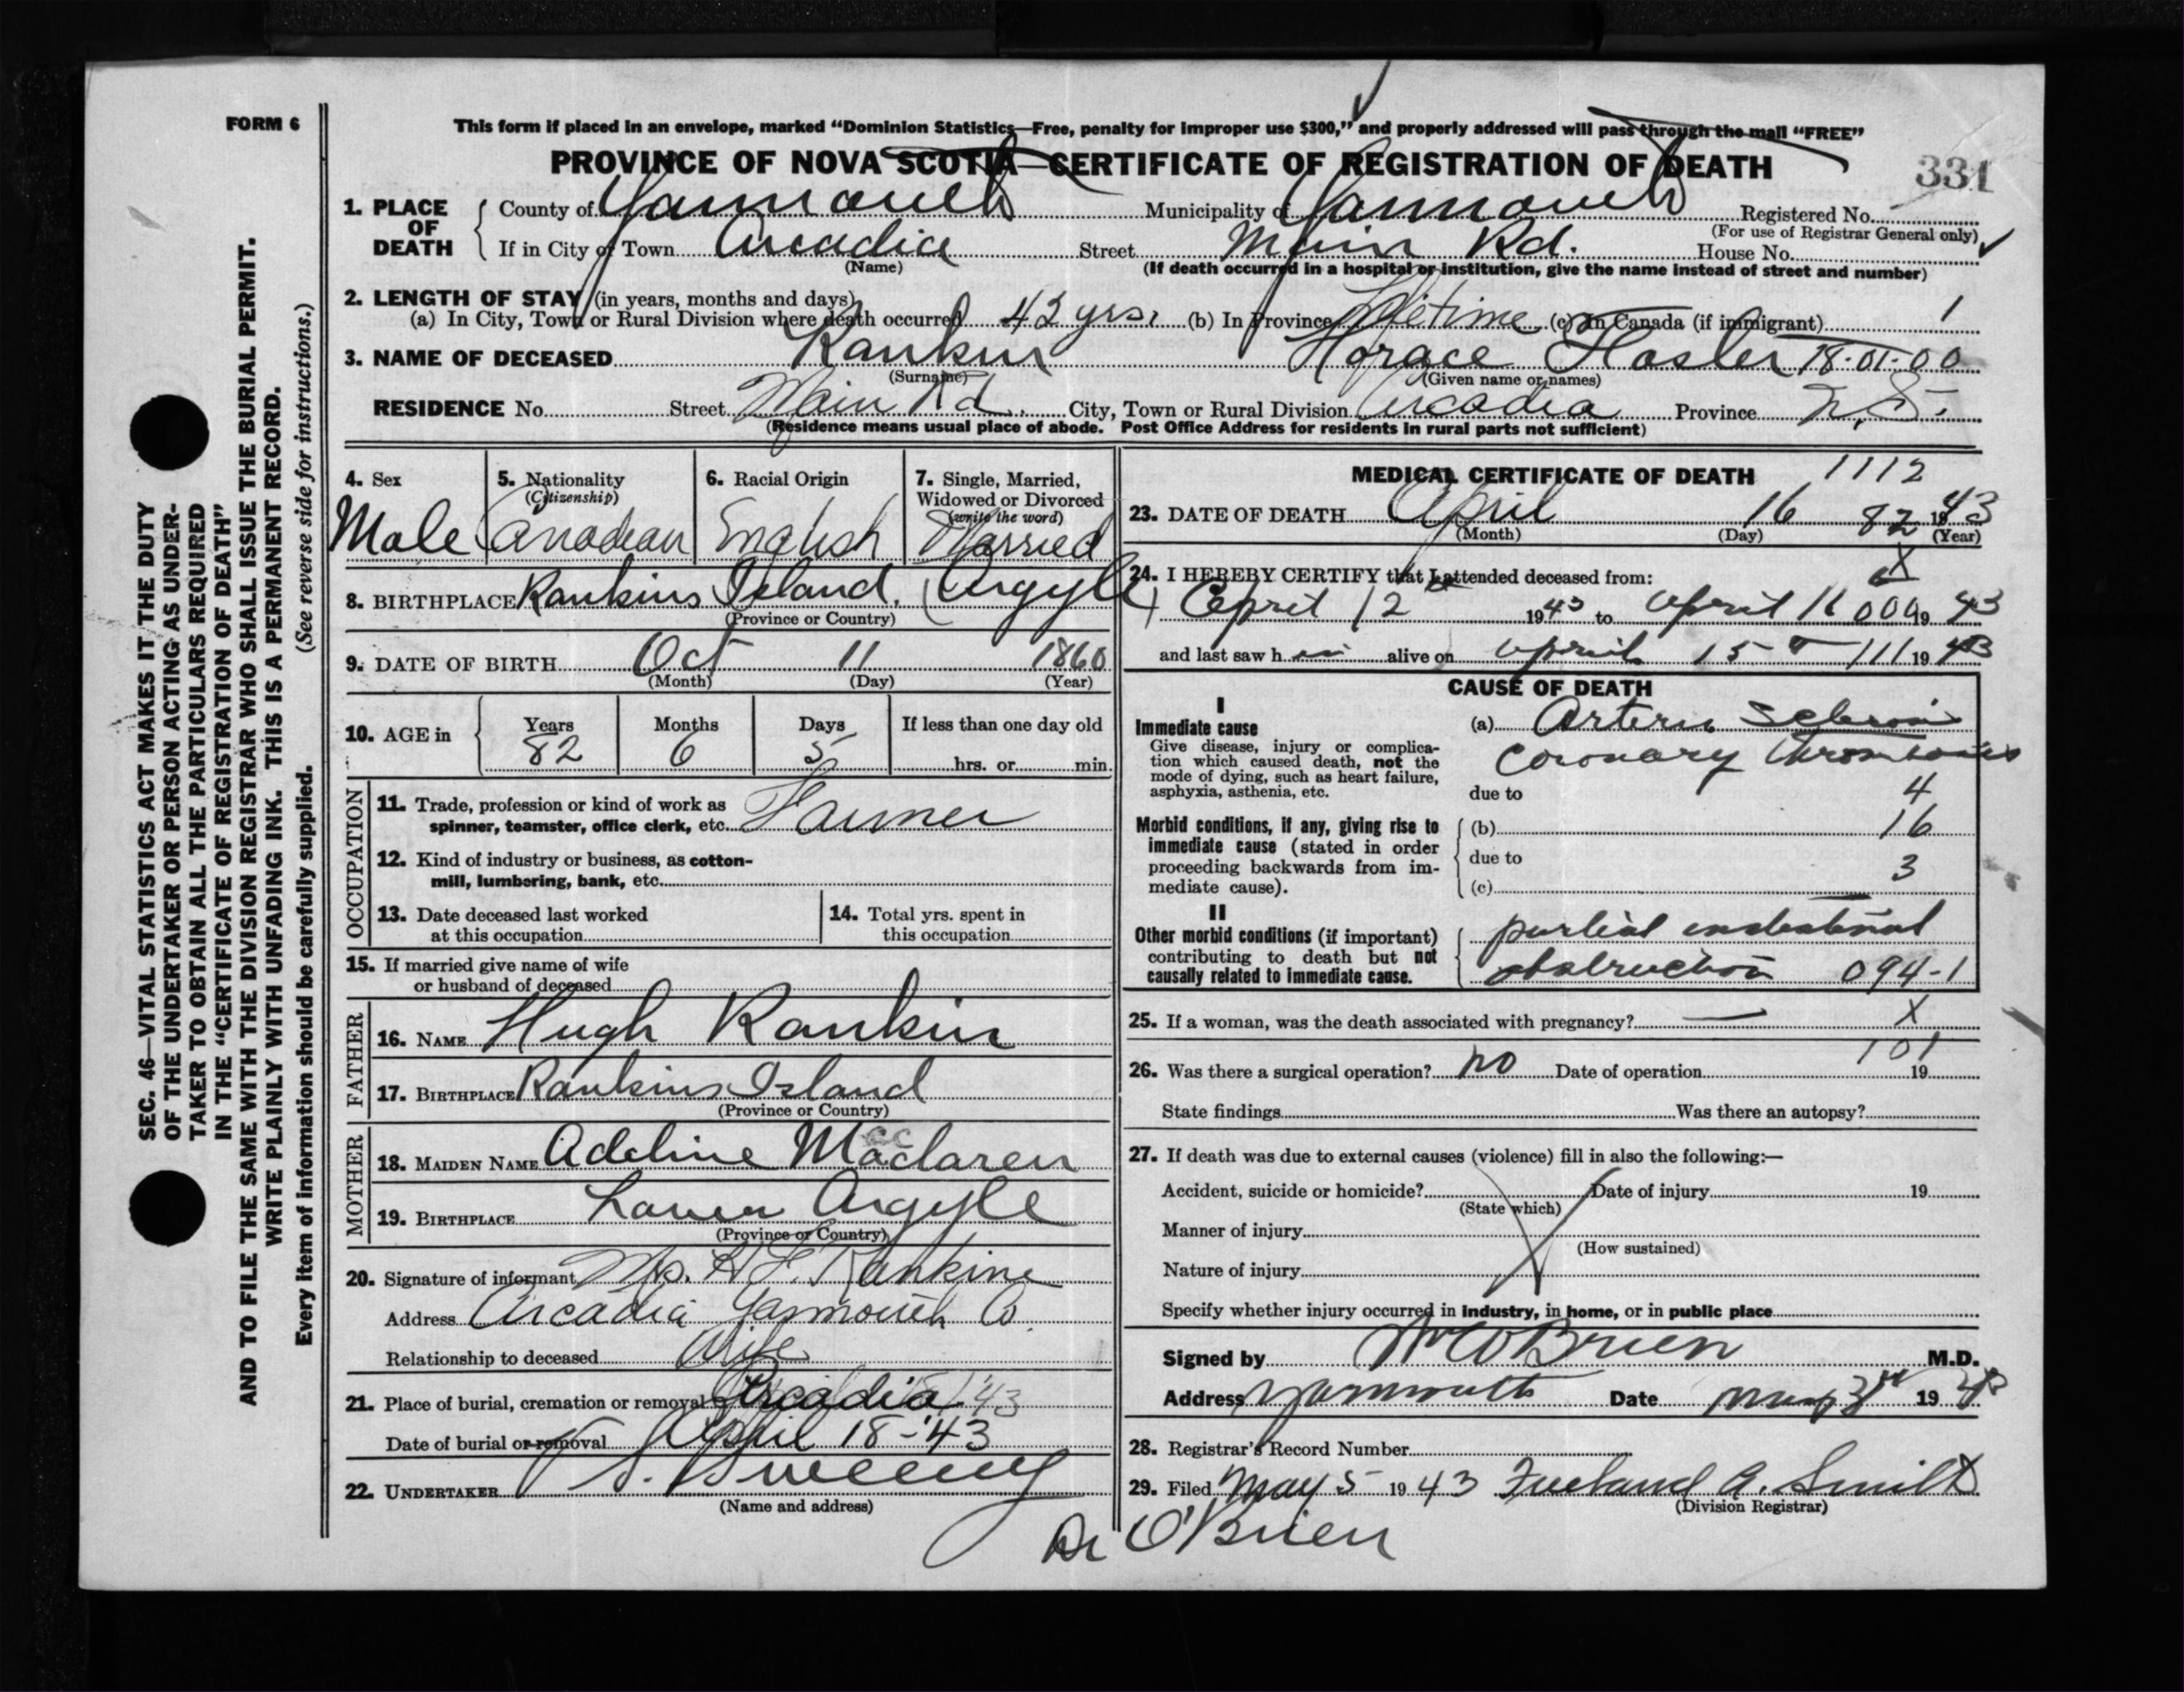 FORM 6
This form if placed in an envelope, marked “Dominion Statistics—Free, penalty for improper use $300,” and properly addressed will pass through the mail “FREE”
PROVINCE OF NOVA SCOTIA—CERTIFICATE OF REGISTRATION OF DEATH
331
1. PLACE OF DEATH
County of Yarmouth Municipality of Yarmouth Registered No.
(For use of Registrar General only)
If in City of Town Arcadia Street Main Rd. House No.
(Name)
(If death occurred in a hospital or institution, give the name instead of street and number)
2. LENGTH OF STAY (in years, months and days)
(a) In City, Town or Rural Division where death occurred 42 yrs. (b) In Province Lifetime (c) In Canada (if immigrant) 1
3. NAME OF DECEASED Rankin Horace 18-01-00
(Surname) (Given name or names)
RESIDENCE No. Street Main Rd. City, Town or Rural Division Arcadia Province N.S.
(Residence means usual place of abode. Post Office Address for residents in rural parts not sufficient)
SEC. 46—VITAL STATISTICS ACT MAKES IT THE DUTY
OF THE UNDERTAKER OR PERSON ACTING AS UNDER-
TAKER TO OBTAIN ALL THE PARTICULARS REQUIRED
IN THE “CERTIFICATE OF REGISTRATION OF DEATH”
AND TO FILE THE SAME WITH THE DIVISION REGISTRAR WHO SHALL ISSUE THE BURIAL PERMIT.
WRITE PLAINLY WITH UNFADING INK. THIS IS A PERMANENT RECORD.
Every item of information should be carefully supplied. (See reverse side for instructions.)
4. Sex
Male
5. Nationality
(Citizenship)
Canadian
6. Racial Origin
English
7. Single, Married,
Widowed or Divorced
(write the word)
Married
8. BIRTHPLACE Rankins Island. (Argyle)
(Province or Country)
9. DATE OF BIRTH Oct 11 1860
(Month) (Day) (Year)
10. AGE in
Years Months Days If less than one day old
82 6 5 hrs. or min.
OCCUPATION
11. Trade, profession or kind of work as
spinner, teamster, office clerk, etc. Farmer
12. Kind of industry or business, as cotton-
mill, lumbering, bank, etc.
13. Date deceased last worked
at this occupation
14. Total yrs. spent in
this occupation
15. If married give name of wife
or husband of deceased
FATHER
16. NAME Hugh Rankin
17. BIRTHPLACE Rankins Island
(Province or Country)
MOTHER
18. MAIDEN NAME Adeline Maclaren
19. BIRTHPLACE Lower Argyle
(Province or Country)
20. Signature of informant Mrs. H F. Rankine
Address Arcadia Yarmouth Co.
Relationship to deceased Wife
21. Place of burial, cremation or removal Arcadia
Date of burial or removal April 18-'43
22. UNDERTAKER Sweeny
(Name and address)
MEDICAL CERTIFICATE OF DEATH 1112
23. DATE OF DEATH April 16 82 1943
(Month) (Day) (Year)
24. I HEREBY CERTIFY that I attended deceased from: X
April 12 1943 to April 16 00 1943
and last saw him alive on April 15 111 1943
CAUSE OF DEATH
I
Immediate cause
Give disease, injury or complica-
tion which caused death, not the
mode of dying, such as heart failure,
asphyxia, asthenia, etc.
(a) Arterio Sclerosis
Coronary thrombosis
due to 4
Morbid conditions, if any, giving rise to
immediate cause (stated in order
proceeding backwards from im-
mediate cause).
(b) 16
due to 3
(c)
II
Other morbid conditions (if important)
contributing to death but not
causally related to immediate cause.
partial intestinal
obstruction 094-1
25. If a woman, was the death associated with pregnancy? — X
101
26. Was there a surgical operation? no Date of operation 19
State findings Was there an autopsy?
27. If death was due to external causes (violence) fill in also the following:—
Accident, suicide or homicide? Date of injury 19
(State which)
Manner of injury
(How sustained)
Nature of injury
Specify whether injury occurred in industry, in home, or in public place
Signed by O'Brien M.D.
Address Yarmouth Date May 3rd 1943
28. Registrar's Record Number
29. Filed May 5 1943 Freeland A. Smith
(Division Registrar)
Dr O'Brien